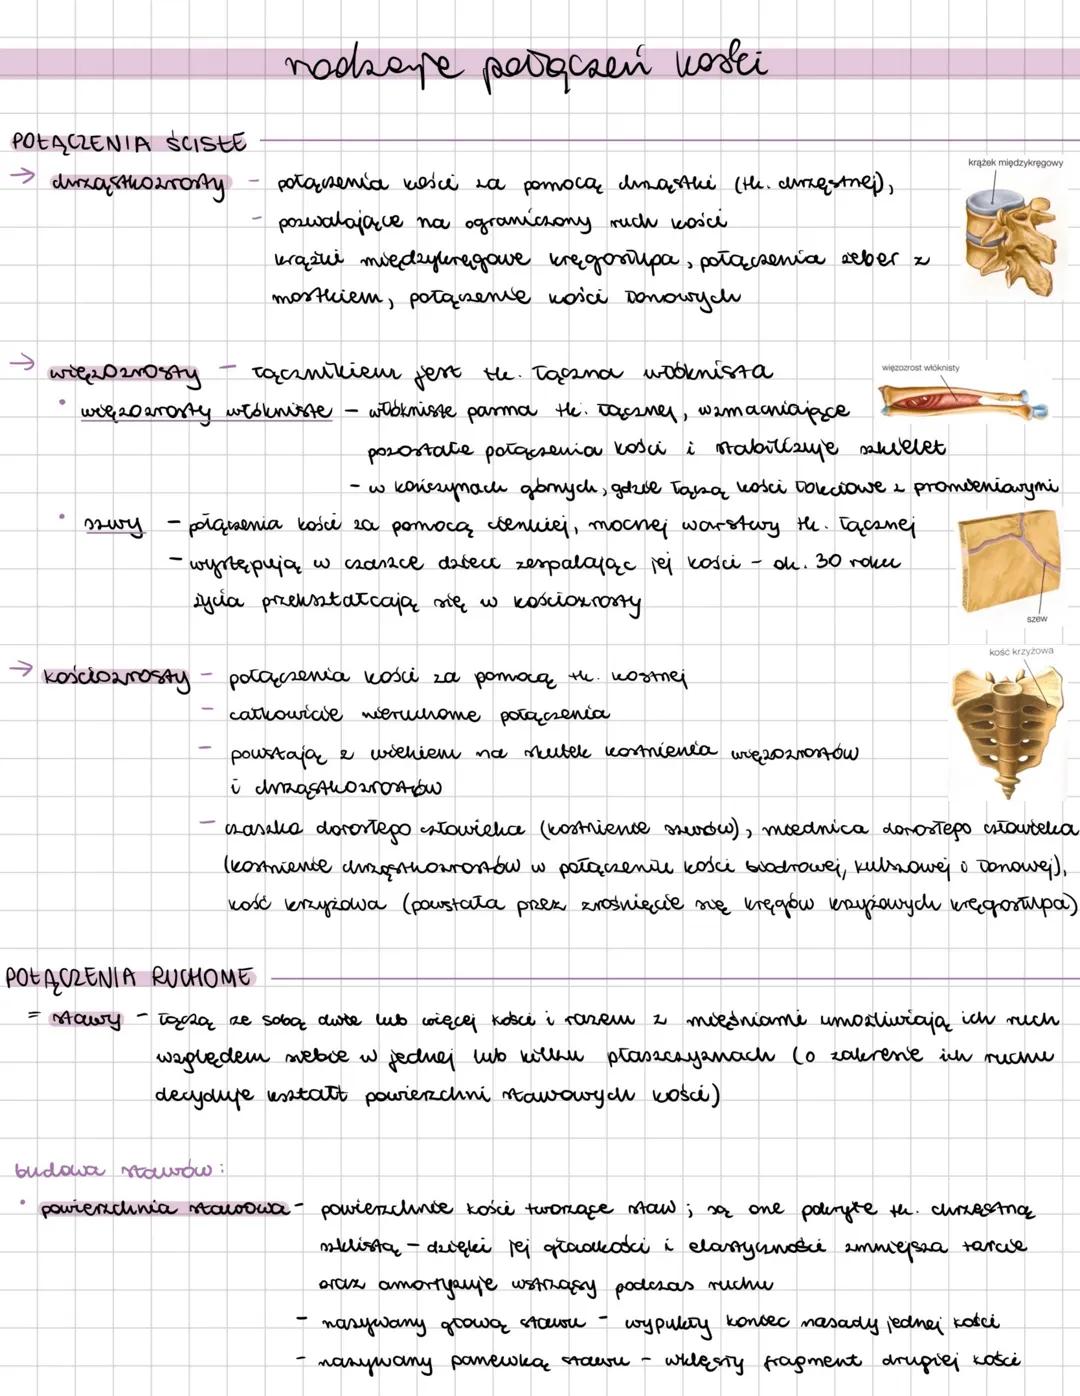 rodzaje połączeń kości
POŁĄCZENIA ŚCISŁE
→ chrząstkozrosty - połączenia kości za pomocą chrząstki (tk. chrzęstnej),
krążek międzykręgowy
- pozwalające na ograniczony ruch kości
krążki międzykręgowe kręgosłupa, połączenia żeber z
mostkiem, połączenie kości łonowych
→ więzozrosty - łącznikiem jest tk. łączna włóknista
więzozrost włóknisty
• więzozrosty włókniste - włókniste pasma tk. łącznej, wzmacniające
pozostałe połączenia kości i stabilizuje szkielet
- w kończynach górnych, gdzie łączą kości łokciowe z promieniowymi
• szwy - połączenia kości za pomocą cienkiej, mocnej warstwy tk. łącznej
- występują w czaszce dzieci zespalając jej kości - ok. 30 roku
życia przekształcają się w kościozrosty
szew
kość krzyżowa
→ kościozrosty - połączenia kości za pomocą tk. kostnej
- całkowicie nieruchome połączenia
- powstają z wiekiem na skutek kostnienia więzozrostów
i chrząstkozrostów
- czaszka dorosłego człowieka (kostnienie szwów), miednica dorosłego człowieka
(kostnienie chrząstkozrostów w połączeniu kości biodrowej, kulszowej i łonowej),
kość krzyżowa (powstała przez zrośnięcie się kręgów krzyżowych kręgosłupa)
POŁĄCZENIA RUCHOME
= stawy - łączą ze sobą dwie lub więcej kości i razem z mięśniami umożliwiają ich ruch
względem siebie w jednej lub kilku płaszczyznach (o zakresie ich ruchu
decyduje kształt powierzchni stawowych kości)
budowa stawów:
• powierzchnia stawowa - powierzchnie kości tworzące staw; są one pokryte tk. chrzęstną
szklistą - dzięki jej gładkości i elastyczności zmniejsza tarcie
oraz amortyzuje wstrząsy podczas ruchu
- nazywany głową stawu - wypukły koniec nasady jednej kości
- nazywany panewką stawu - wklęsły fragment drugiej kości